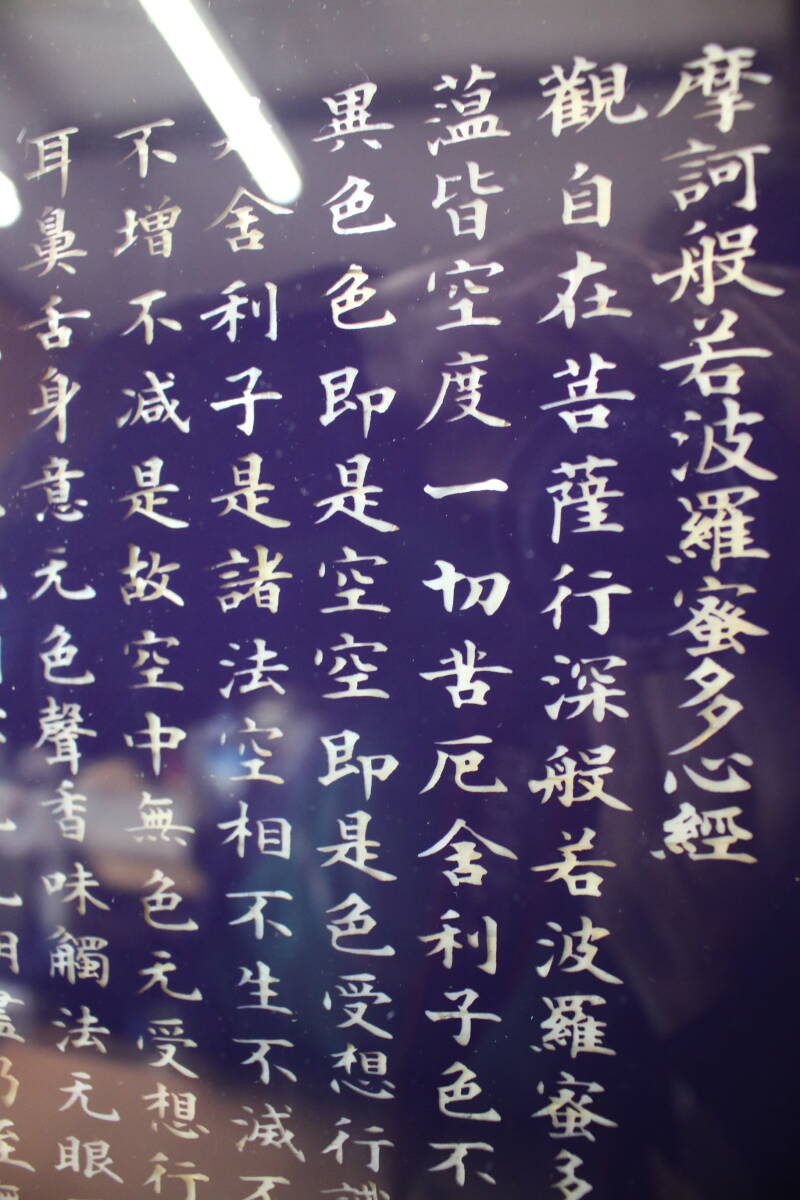 摩訶般若波羅蜜多心經
觀自在菩薩行深般若波羅蜜多
薀皆空度一切苦厄舍利子色不
異色色即是空空即是色受想行識
舍利子是諸法空相不生不滅不
不增不減是故空中無色无受想行
耳鼻舌身意无色聲香味觸法无眼
盡乃至無